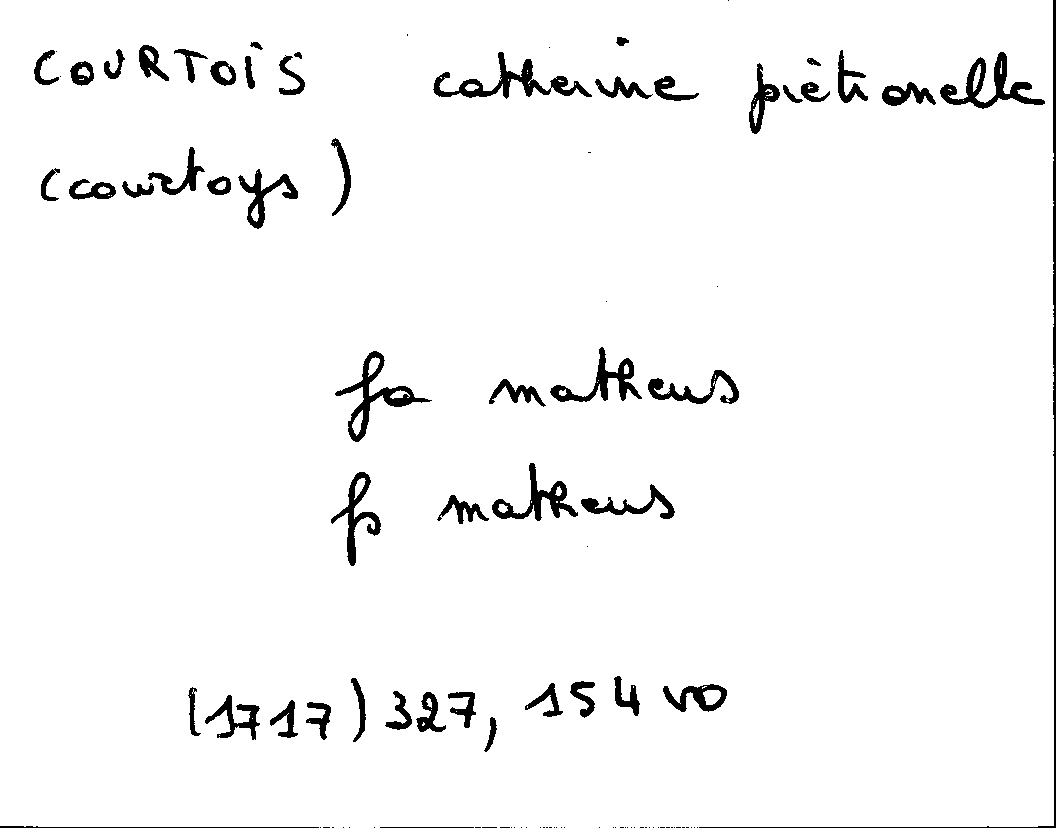 COURTOIS catherine piètronelle
(courtoys)
fa matheus
fs matheus
(1717) 327, 154 vo